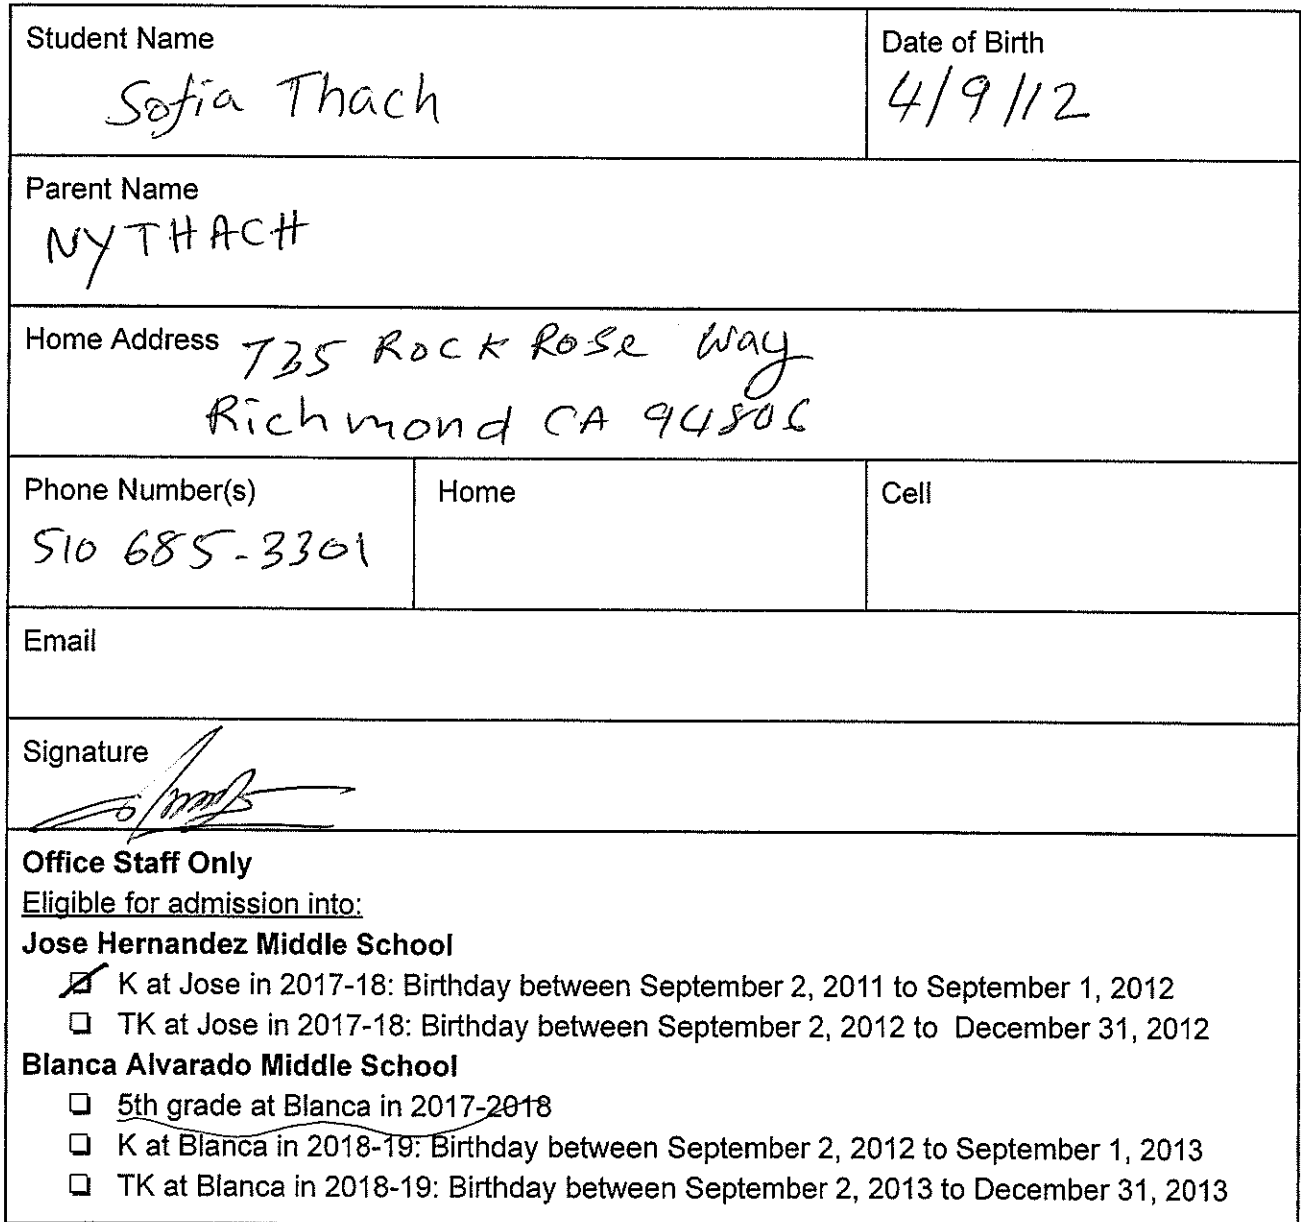 Student Name
Date of Birth
Sofia Thach
4/9/12
Parent Name
NY THACH
Home Address 735 Rock Rose Way
Richmond CA 94806
Phone Number(s)
Home
Cell
510 685-3301
Email
Signature
Office Staff Only
Eligible for admission into:
Jose Hernandez Middle School
K at Jose in 2017-18: Birthday between September 2, 2011 to September 1, 2012
TK at Jose in 2017-18: Birthday between September 2, 2012 to December 31, 2012
Blanca Alvarado Middle School
5th grade at Blanca in 2017-2018
K at Blanca in 2018-19: Birthday between September 2, 2012 to September 1, 2013
TK at Blanca in 2018-19: Birthday between September 2, 2013 to December 31, 2013